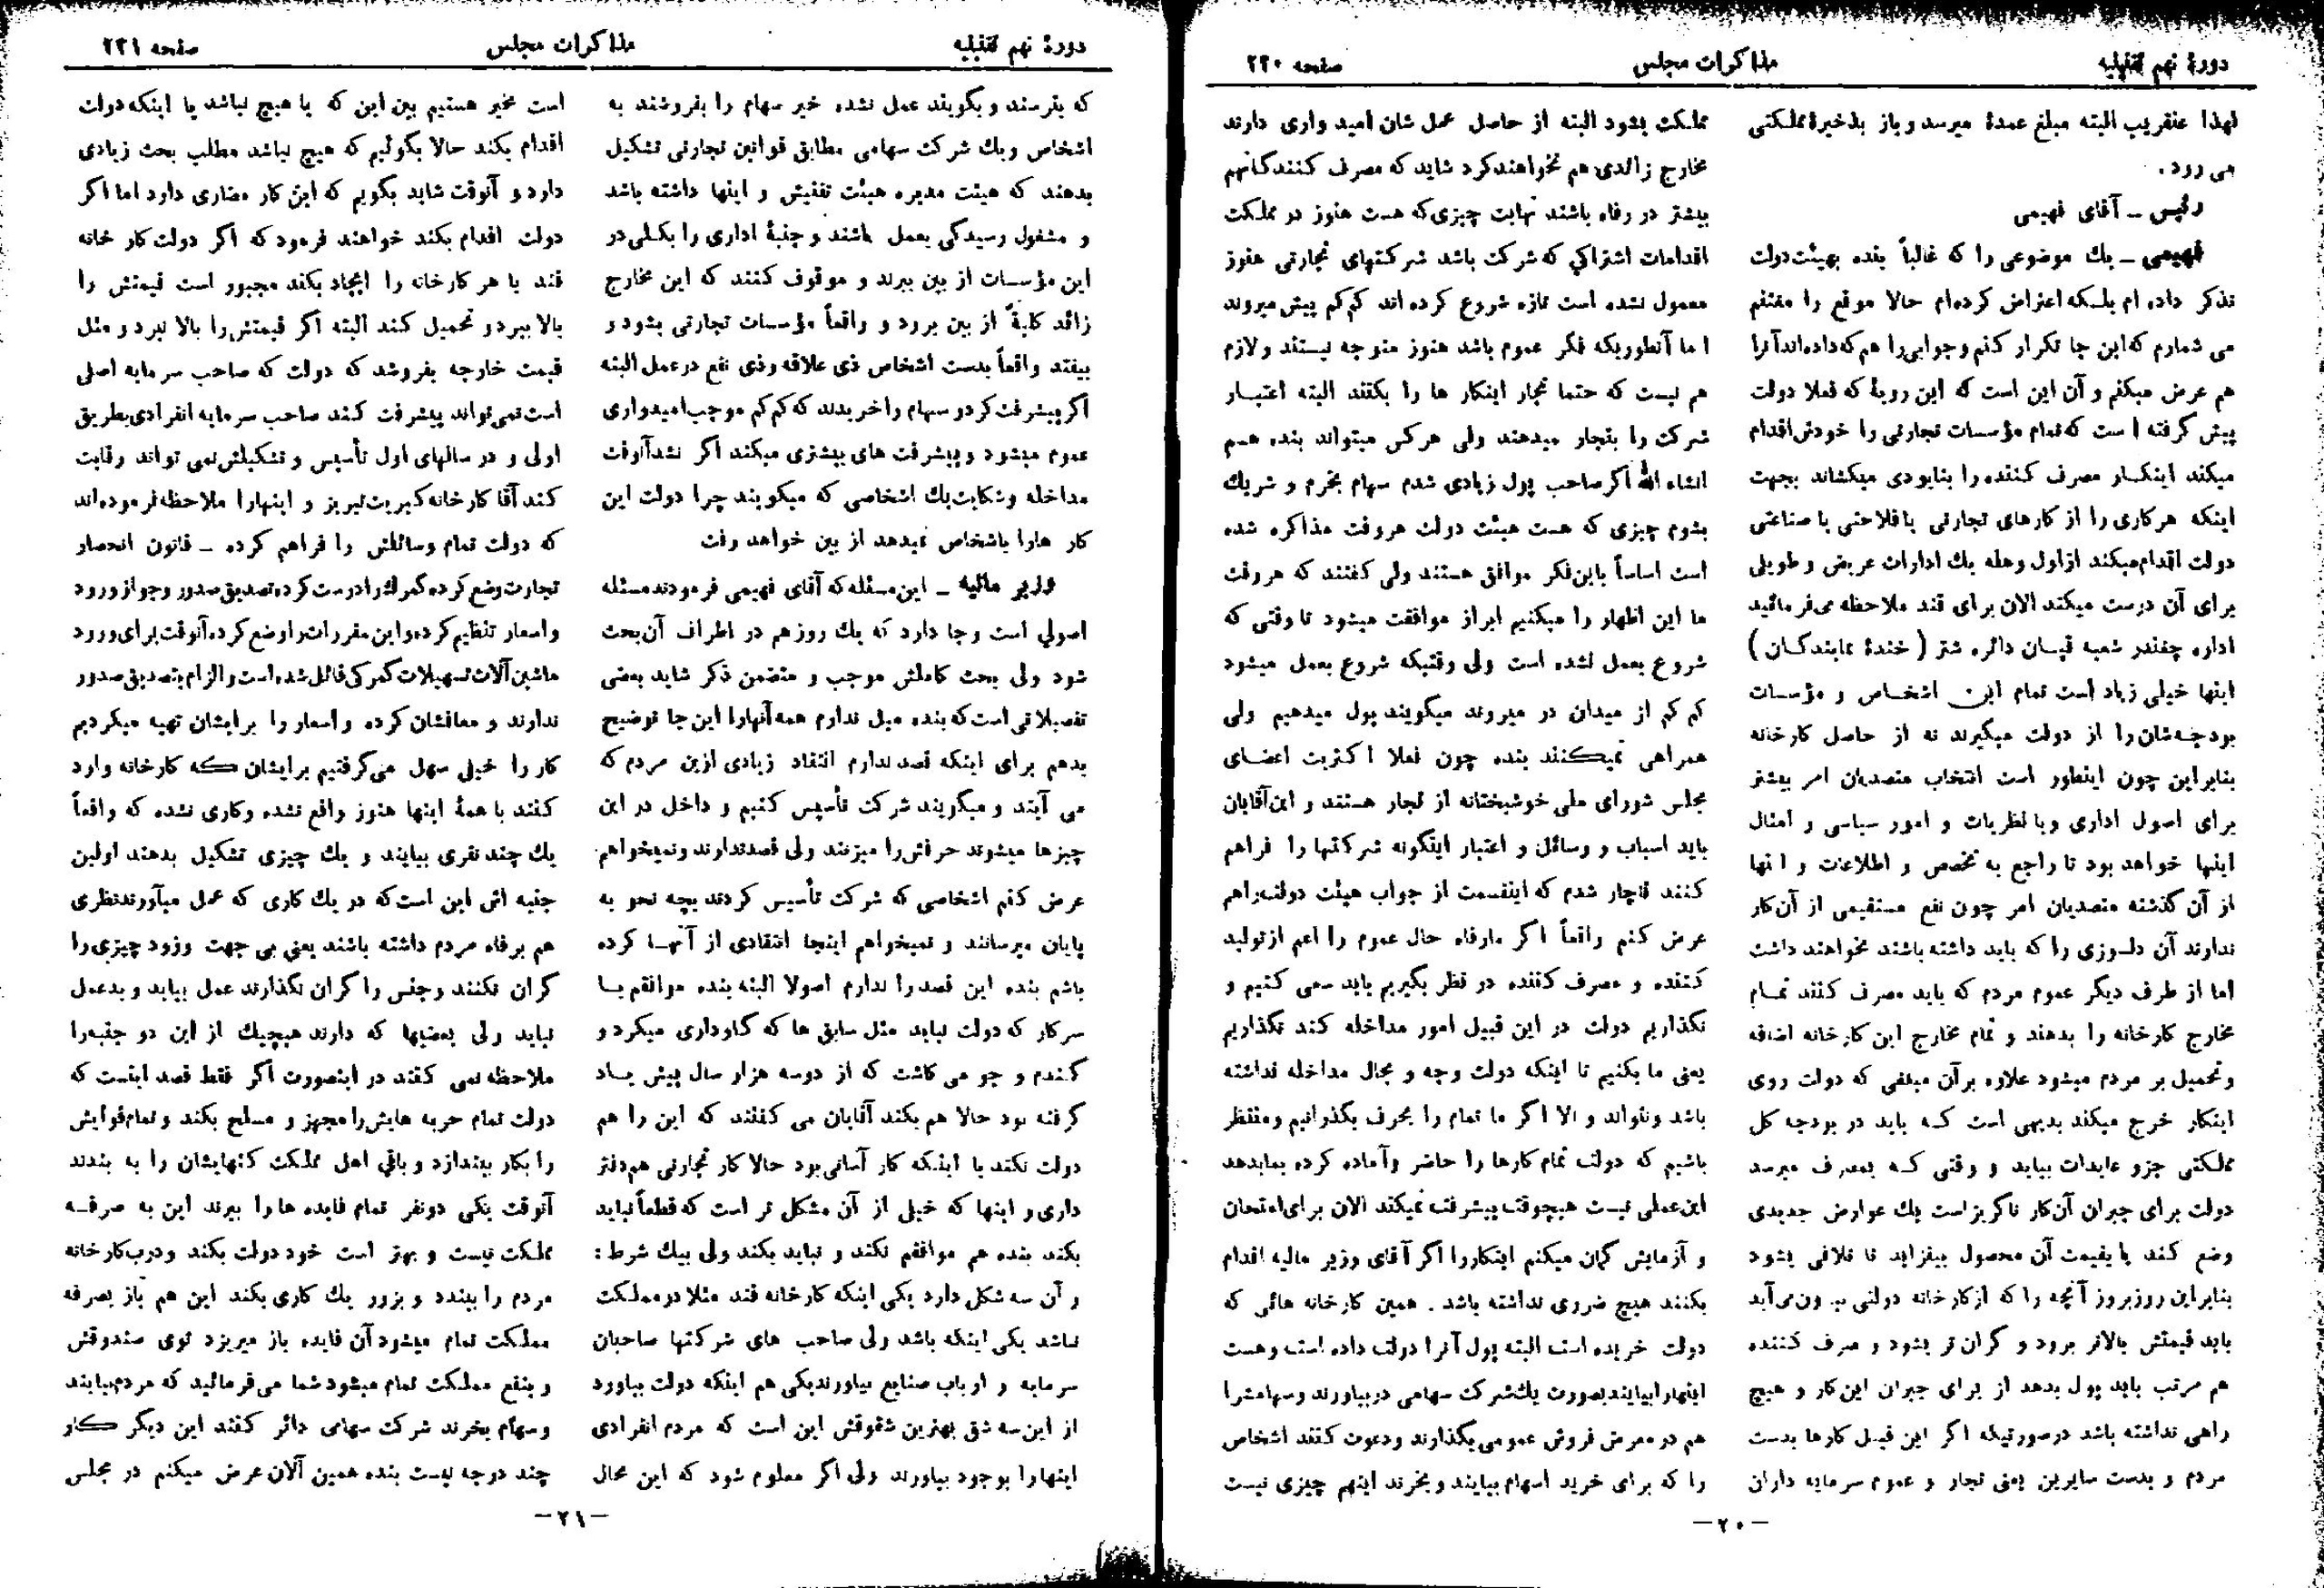 دورهٔ نهم تقنینیه
مذاکرات مجلس
صفحه ۲۲۰
لهذا عنقریب البته مبلغ عمدهٔ میرسد و باز بذخیرهٔ مملکتی
می رود.
رئیس ـ آقای فهیمی
فهیمی ـ یك موضوعی را که غالباً بنده بهیئت دولت
تذکر داده ام بلکه اعتراض کرده‌ام حالا موقع را مغتنم
می شمارم که این جا تکرار کنم و جوابی را هم که داده‌اند آنرا
هم عرض میکنم و آن این است که این رویهٔ که فعلا دولت
پیش گرفته است که تمام مؤسسات تجارتی را خودش اقدام
میکند اینکار مصرف کننده را بنابودی میکشاند بجهت
اینکه هرکاری را از کارهای تجارتی یا فلاحتی یا صناعتی
دولت اقدام میکند از اول وهله یك ادارات عریض و طویلی
برای آن درست میکند الان برای قند ملاحظه می‌فرمائید
اداره چغندر شعبه قپان دائره شتر ( خندهٔ نمایندگان )
اینها خیلی زیاد است تمام این اشخاص و مؤسسات
بودجه‌شان را از دولت میگیرند نه از حاصل کارخانه
بنابراین چون اینطور است انتخاب متصدیان امر بیشتر
برای اصول اداری و یا نظریات و امور سیاسی و امثال
اینها خواهد بود تا راجع به تخصص و اطلاعات و اینها
از آن گذشته متصدیان امر چون نفع مستقیمی از آن کار
ندارند آن دلسوزی را که باید داشته باشند نخواهند داشت
اما از طرف دیگر عموم مردم که باید مصرف کنند تمام
مخارج کارخانه را بدهند و تمام مخارج این کارخانه اضافه
و تحمیل بر مردم میشود علاوه بر آن مبلغی که دولت روی
اینکار خرج میکند بدیهی است که باید در بودجه کل
مملکتی جزو عایدات بیاید و وقتی که بمصرف میرسد
دولت برای جبران آن کار ناگریز است یك عوارض جدیدی
وضع کند یا بقیمت آن محصول بیفزاید تا تلافی بشود
بنابراین روزبروز آنچه را که از کارخانه دولتی بیرون می‌آید
باید قیمتش بالاتر برود و گران تر بشود و مصرف کننده
هم مرتب باید پول بدهد از برای جبران این کار و هیچ
راهی نداشته باشد درصورتیکه اگر این قبیل کارها بدست
مردم و بدست سایرین یعنی تجار و عموم سرمایه داران
مملکت بشود البته از حاصل عمل شان امید واری دارند
مخارج زائدی هم نخواهند کرد شاید که مصرف کنندگانهم
بیشتر در رفاه باشند نهایت چیزی که هست هنوز در مملکت
اقدامات اشتراکی که شرکت باشد شرکتهای تجارتی هنوز
معمول نشده است تازه شروع کرده اند کم کم پیش میروند
اما آنطوریکه فکر عموم باشد هنوز متوجه نیستند و لازم
هم نیست که حتما تجار اینکار ها را بکنند البته اعتبار
شرکت را بتجار میدهند ولی هرکس میتواند بنده هم
انشاء الله اگر صاحب پول زیادی شدم سهام بخرم و شریك
بشوم چیزی که هست هیئت دولت هروقت مذاکره شده
است اساساً باین فکر موافق هستند ولی گفتند که هر وقت
ما این اظهار را میکنیم ابراز موافقت میشود تا وقتی که
شروع بعمل نشده است ولی وقتیکه شروع بعمل میشود
کم کم از میدان در میروند میگویند پول میدهیم ولی
همراهی نمیکنند بنده چون فعلا اکثریت اعضای
مجلس شورای ملی خوشبختانه از تجار هستند و این آقایان
باید اسباب و وسائل و اعتبار اینگونه شرکتها را فراهم
کنند ناچار شدم که اینقسمت از جواب هیئت دولت را هم
عرض کنم واقعاً اگر ما رفاه حال عموم را اعم از تولید
کننده و مصرف کننده در نظر بگیریم باید سعی کنیم و
نگذاریم دولت در این قبیل امور مداخله کند نگذاریم
یعنی ما بکنیم تا اینکه دولت وجه و مجال مداخله نداشته
باشد و نتواند و الا اگر ما تمام را بحرف بگذرانیم و منتظر
باشیم که دولت تمام کارها را حاضر و آماده کرده بما بدهد
این عملی نیست هیچوقت پیشرفت نمیکند الان برای امتحان
و آزمایش گمان میکنم اینکار را اگر آقای وزیر مالیه اقدام
بکنند هیچ ضرری نداشته باشد . همین کارخانه هائی که
دولت خریده است البته پول آنرا دولت داده است و هست
اینها را بیایند بصورت یك شرکت سهامی در بیاورند و سهامش را
هم در معرض فروش عمومی بگذارند و دعوت کنند اشخاص
را که برای خرید اسهام بیایند و بخرند اینهم چیزی نیست
ـ ۲۰ ـ
دورهٔ نهم تقنینیه
مذاکرات مجلس
صفحه ۲۲۱
که بترسند و بگویند عمل نشده خیر سهام را بفروشند به
اشخاص و یك شرکت سهامی مطابق قوانین تجارتی تشکیل
بدهند که هیئت مدیره هیئت تفتیش و اینها داشته باشد
و مشغول رسیدگی بعمل باشند و جنبهٔ اداری را بکلی در
این مؤسسات از بین ببرند و موقوف کنند که این مخارج
زائد کلیةً از بین برود و واقعاً مؤسسات تجارتی بشود و
بیفتد واقعاً بدست اشخاص ذی علاقه و ذی نفع در عمل البته
اگر پیشرفت کرد و سهام را خریدند که کم کم موجب امیدواری
عموم میشود و پیشرفت های بیشتری میکند اگر نشد آنوقت
مداخله و شکایت یك اشخاصی که میگویند چرا دولت این
کار هارا باشخاص نمیدهد از بین خواهد رفت
وزیر مالیه ـ این مسئله که آقای فهیمی فرمودند مسئله
اصولی است و جا دارد که یك روز هم در اطراف آن بحث
شود ولی بحث کاملش موجب و متضمن ذکر شاید بعضی
تفصیلاتی است که بنده میل ندارم همه آنهارا این جا توضیح
بدهم برای اینکه قصد ندارم انتقاد زیادی ازین مردم که
می آیند و میگویند شرکت تأسیس کنیم و داخل در این
چیزها میشوند حرفش را میزنند ولی قصد ندارند و نمیخواهم
عرض کنم اشخاصی که شرکت تأسیس کردند بچه نحو به
پایان میرسانند و نمیخواهم اینجا انتقادی از آنها کرده
باشم بنده این قصد را ندارم اصولا البته بنده موافقم با
سرکار که دولت نباید مثل سابق ها که گاوداری میکرد و
گندم و جو می کاشت که از دوسه هزار سال پیش یاد
گرفته بود حالا هم بکند آقایان می گفتند که این را هم
دولت نکند با اینکه کار آسانی بود حالا کار تجارتی هم دفتر
داری و اینها که خیلی از آن مشکل تر است که قطعاً نباید
بکند بنده هم موافقم نکند و نباید بکند ولی بیك شرط :
و آن سه شکل دارد یکی اینکه کارخانه قند مثلا در مملکت
نباشد یکی اینکه باشد ولی صاحب های شرکتها صاحبان
سرمایه و ارباب صنایع بیاورند یکی هم اینکه دولت بیاورد
از این سه شق بهترین شقوقش این است که مردم انفرادی
اینهارا بوجود بیاورند ولی اگر معلوم شود که این محال
است مخیر هستیم بین این که یا هیچ نباشد یا اینکه دولت
اقدام بکند حالا بگوئیم که هیچ نباشد مطلب بحث زیادی
دارد و آنوقت شاید بگویم که این کار مضاری دارد اما اگر
دولت اقدام بکند خواهند فرمود که اگر دولت کار خانه
قند یا هر کارخانه را ایجاد بکند مجبور است قیمتش را
بالا ببرد و تحمیل کند البته اگر قیمتش را بالا نبرد و مثل
قیمت خارجه بفروشد که دولت که صاحب سرمایه اصلی
است نمی‌تواند پیشرفت کند صاحب سرمایه انفرادی بطریق
اولی و در سالهای اول تأسیس و تشکیلش نمی تواند رقابت
کند آقا کارخانه کبریت تبریز و اینهارا ملاحظه فرموده‌اند
که دولت تمام وسائلش را فراهم کرده ـ قانون انحصار
تجارت وضع کرده گمرك را درست کرده تصدیق صدور و جواز ورود
و اسعار تنظیم کرده و این مقررات را وضع کرده آنوقت برای ورود
ماشین آلات تسهیلات گمرکی قائل شده است و الزام بتصدیق صدور
ندارند و معافشان کرده و اسعار را برایشان تهیه میکردیم
کار را خیلی سهل می‌گرفتیم برایشان که کارخانه وارد
کنند با همهٔ اینها هنوز واقع نشده و کاری نشده که واقعاً
یك چند نفری بیایند و یك چیزی تشکیل بدهند اولین
جنبه اش این است که در یك کاری که عمل میآورند نظری
هم برفاه مردم داشته باشند یعنی بی جهت و زود چیزی را
گران نکنند و جنس را گران نگذارند عمل بیاید و بد عمل
نیاید ولی بعضیها که دارند هیچیك از این دو جنبه را
ملاحظه نمی کنند در اینصورت اگر فقط قصد اینست که
دولت تمام حربه هایش را مجهز و مسلح بکند و تمام قوایش
را بکار بیندازد و باقی اهل مملکت کتهایشان را به بندند
آنوقت یکی دونفر تمام فایده ها را ببرند این به صرفه
مملکت نیست و بهتر است خود دولت بکند و درب کارخانه
مردم را ببندد و بزور یك کاری بکند این هم باز بصرفه
مملکت تمام میشود آن فایده باز میریزد توی صندوقش
و بنفع مملکت تمام میشود شما می‌فرمائید که مردم بیایند
و سهام بخرند شرکت سهامی دائر کنند این دیگر کار
چند درجه نیست بنده همین آلان عرض میکنم در مجلس
ـ ۲۱ ـ